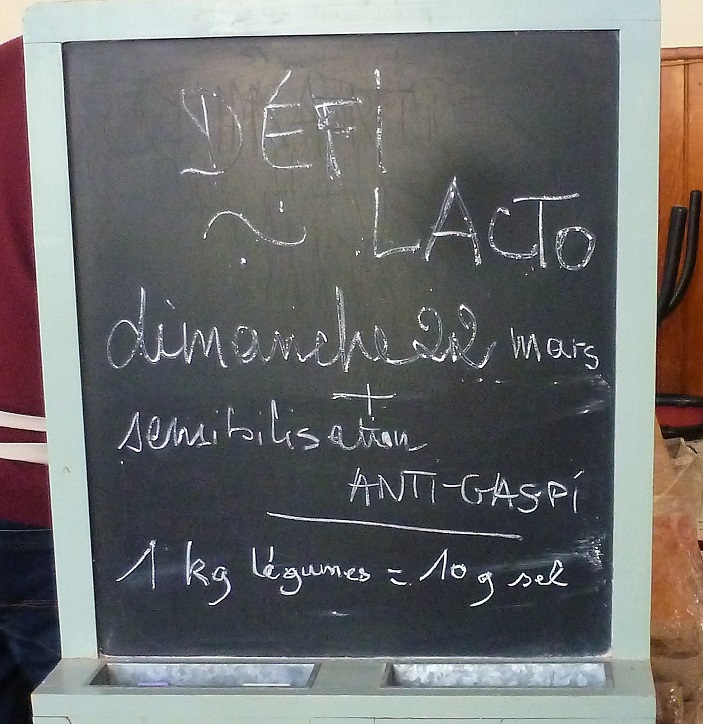 DÉFI
~ LACTO
dimanche 22 mars
+
sensibilisation
ANTI-GASPI
1 kg légumes = 10 g sel